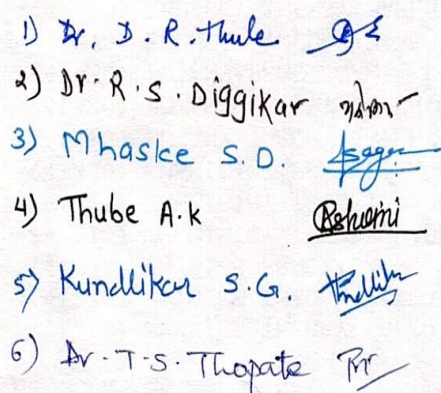 1) Dr. D. R. Thule
2) Dr. R. S. Diggikar
3) Mhaske S. D.
4) Thube A.K Ashwini
5) Kundlikar S. G.
6) Dr. T. S. Thopate